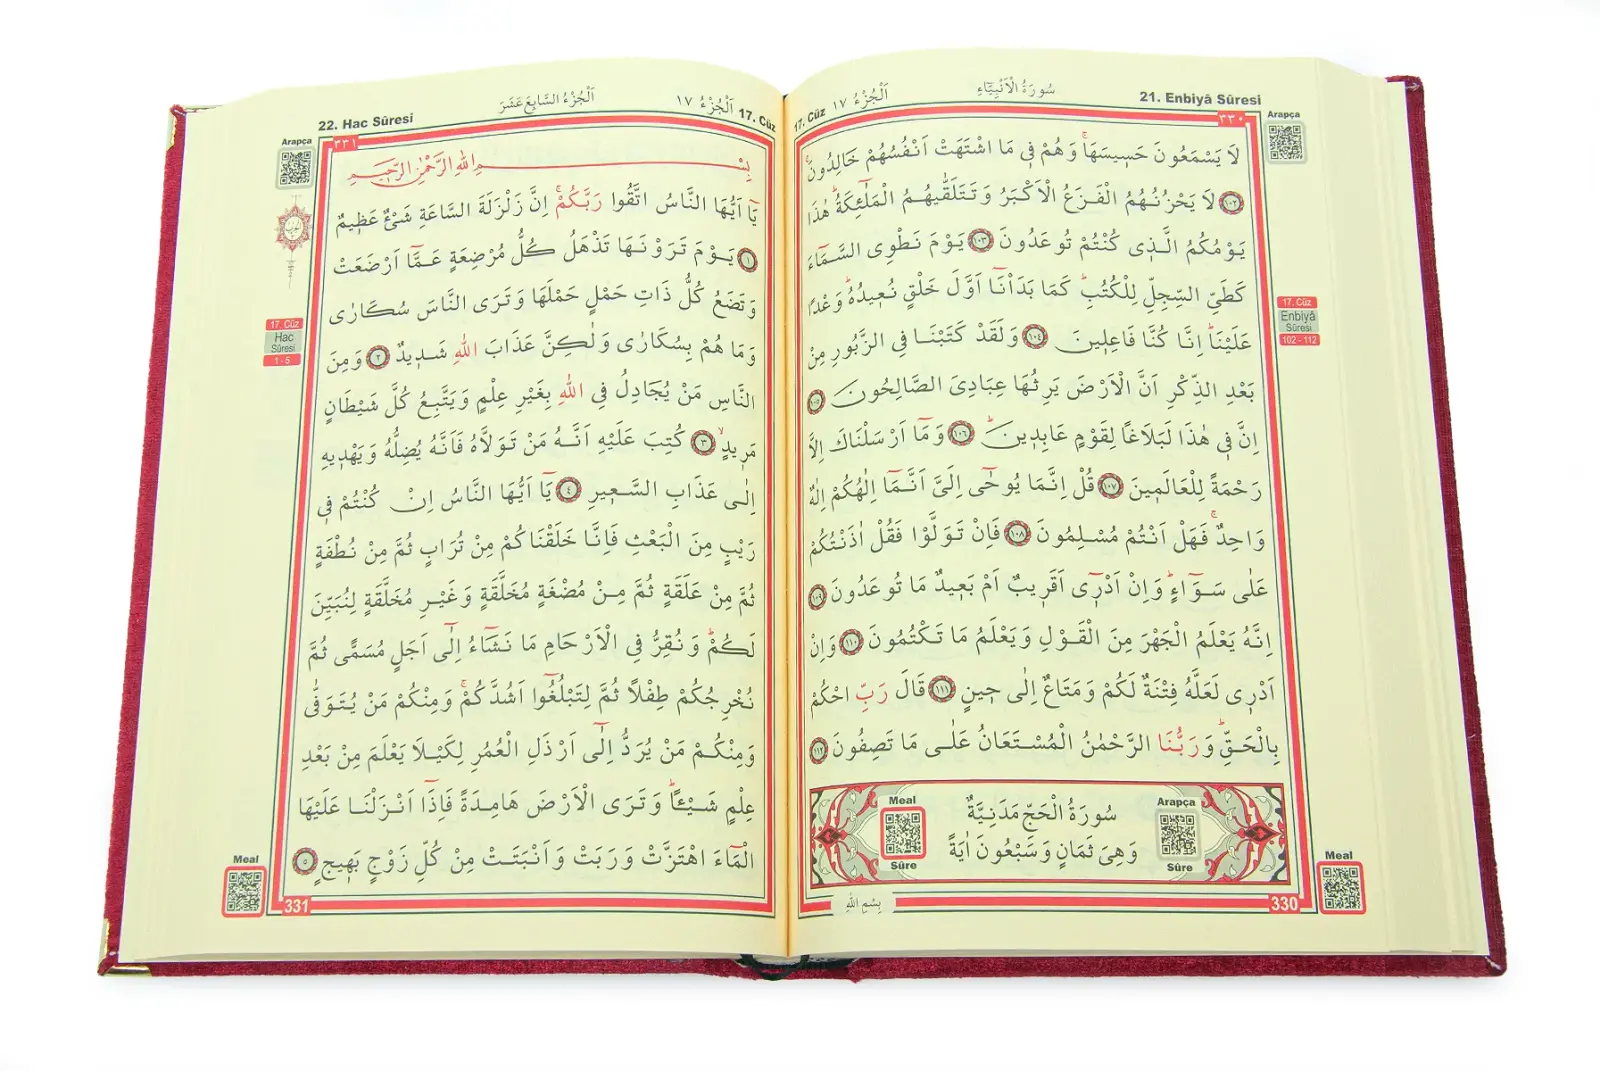 21. Enbiyâ Sûresi
سُورَةُ الْاَنْبِيَٓاءِ
اَلْجُزْءُ ١٧
17. Cüz
٣٣٠
Arapça
لَا يَسْمَعُونَ حَس۪يسَهَاۚ وَهُمْ ف۪ي مَا اشْتَهَتْ اَنْفُسُهُمْ خَالِدُونَۚ
﴿١٠٢﴾ لَا يَحْزُنُهُمُ الْفَزَعُ الْاَكْبَرُ وَتَتَلَقّٰيهُمُ الْمَلٰٓئِكَةُۜ هٰذَا
يَوْمُكُمُ الَّذ۪ي كُنْتُمْ تُوعَدُونَ ﴿١٠٣﴾ يَوْمَ نَطْوِي السَّمَٓاءَ
كَطَيِّ السِّجِلِّ لِلْكُتُبِۜ كَمَا بَدَأْنَٓا اَوَّلَ خَلْقٍ نُع۪يدُهُۜ وَعْدًا
عَلَيْنَاۜ اِنَّا كُنَّا فَاعِل۪ينَ ﴿١٠٤﴾ وَلَقَدْ كَتَبْنَا فِي الزَّبُورِ مِنْ
بَعْدِ الذِّكْرِ اَنَّ الْاَرْضَ يَرِثُهَا عِبَادِيَ الصَّالِحُونَ ﴿١٠٥﴾
اِنَّ ف۪ي هٰذَا لَبَلَاغًا لِقَوْمٍ عَابِد۪ينَۜ ﴿١٠٦﴾ وَمَٓا اَرْسَلْنَاكَ اِلَّا
رَحْمَةً لِلْعَالَم۪ينَ ﴿١٠٧﴾ قُلْ اِنَّمَا يُوحٰٓى اِلَيَّ اَنَّمَٓا اِلٰهُكُمْ اِلٰهٌ
وَاحِدٌۚ فَهَلْ اَنْتُمْ مُسْلِمُونَ ﴿١٠٨﴾ فَاِنْ تَوَلَّوْا فَقُلْ اٰذَنْتُكُمْ
عَلٰى سَوَٓاءٍۜ وَاِنْ اَدْر۪ٓي اَقَر۪يبٌ اَمْ بَع۪يدٌ مَا تُوعَدُونَ ﴿١٠٩﴾
اِنَّهُ يَعْلَمُ الْجَهْرَ مِنَ الْقَوْلِ وَيَعْلَمُ مَا تَكْتُمُونَ ﴿١١٠﴾ وَاِنْ
اَدْر۪ي لَعَلَّهُ فِتْنَةٌ لَكُمْ وَمَتَاعٌ اِلٰى ح۪ينٍ ﴿١١١﴾ قَالَ رَبِّ احْكُمْ
بِالْحَقِّۜ وَرَبُّنَا الرَّحْمٰنُ الْمُسْتَعَانُ عَلٰى مَا تَصِفُونَ ﴿١١٢﴾
17. Cüz
Enbiyâ
Sûresi
102 - 112
سُورَةُ الْحَجِّ مَدَنِيَّةٌ
وَهِيَ ثَمَانٍ وَسَبْعُونَ اٰيَةً
Arapça
Sûre
Meal
Sûre
Meal
330
بِسْمِ اللّٰهِ
17. Cüz
اَلْجُزْءُ ١٧
اَلْجُزْءُ السَّابِعَ عَشَرَ
22. Hac Sûresi
٣٣١
Arapça
بِسْمِ اللّٰهِ الرَّحْمٰنِ الرَّح۪يمِ
يَٓا اَيُّهَا النَّاسُ اتَّقُوا رَبَّكُمْۚ اِنَّ زَلْزَلَةَ السَّاعَةِ شَيْءٌ عَظ۪يمٌ
﴿١﴾ يَوْمَ تَرَوْنَهَا تَذْهَلُ كُلُّ مُرْضِعَةٍ عَمَّٓا اَرْضَعَتْ
وَتَضَعُ كُلُّ ذَاتِ حَمْلٍ حَمْلَهَا وَتَرَى النَّاسَ سُكَارٰى
وَمَا هُمْ بِسُكَارٰى وَلٰكِنَّ عَذَابَ اللّٰهِ شَد۪يدٌ ﴿٢﴾ وَمِنَ
النَّاسِ مَنْ يُجَادِلُ فِي اللّٰهِ بِغَيْرِ عِلْمٍ وَيَتَّبِعُ كُلَّ شَيْطَانٍ
مَر۪يدٍۙ ﴿٣﴾ كُتِبَ عَلَيْهِ اَنَّهُ مَنْ تَوَلَّاهُ فَاَنَّهُ يُضِلُّهُ وَيَهْد۪يهِ
اِلٰى عَذَابِ السَّع۪يرِ ﴿٤﴾ يَٓا اَيُّهَا النَّاسُ اِنْ كُنْتُمْ ف۪ي
رَيْبٍ مِنَ الْبَعْثِ فَاِنَّا خَلَقْنَاكُمْ مِنْ تُرَابٍ ثُمَّ مِنْ نُطْفَةٍ
ثُمَّ مِنْ عَلَقَةٍ ثُمَّ مِنْ مُضْغَةٍ مُخَلَّقَةٍ وَغَيْرِ مُخَلَّقَةٍ لِنُبَيِّنَ
لَكُمْۜ وَنُقِرُّ فِي الْاَرْحَامِ مَا نَشَٓاءُ اِلٰٓى اَجَلٍ مُسَمًّى ثُمَّ
نُخْرِجُكُمْ طِفْلًا ثُمَّ لِتَبْلُغُٓوا اَشُدَّكُمْۚ وَمِنْكُمْ مَنْ يُتَوَفّٰى
وَمِنْكُمْ مَنْ يُرَدُّ اِلٰٓى اَرْذَلِ الْعُمُرِ لِكَيْلَا يَعْلَمَ مِنْ بَعْدِ
عِلْمٍ شَيْـًٔاۜ وَتَرَى الْاَرْضَ هَامِدَةً فَاِذَٓا اَنْزَلْنَا عَلَيْهَا
الْمَٓاءَ اهْتَزَّتْ وَرَبَتْ وَاَنْبَتَتْ مِنْ كُلِّ زَوْجٍ بَه۪يجٍ ﴿٥﴾
17. Cüz
Hac
Sûresi
1 - 5
Meal
331